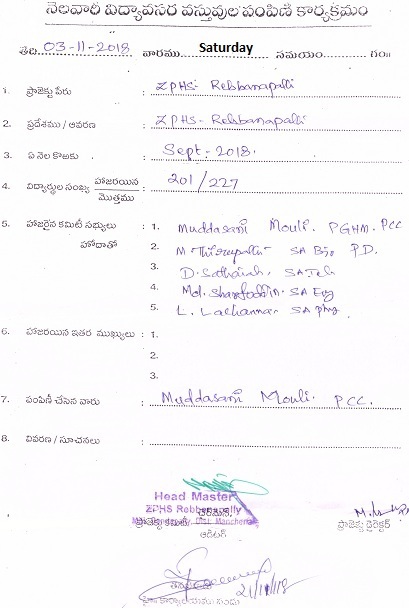 నెలవారీ విద్యావసర వస్తువుల పంపిణీ కార్యక్రమం
తేది. 03-11-2018 వారము. Saturday సమయం. గం॥
1. ప్రాజెక్టు పేరు : ZPHS- Rebbanapalli
2. ప్రదేశము / ఆవరణ : ZPHS- Rebbanapalli
3. ఏ నెల కొఱకు : Sept - 2018.
4. విద్యార్థుల సంఖ్య హాజరయిన / మొత్తము : 201/227
5. హాజరైన కమిటీ సభ్యులు : 1. Muddasani Mouli. PGHM. PCC
హోదాతో 2. M Thirupathi SA P.D.
3. D. Sathaiah, SA Tel
4. Md. Sharfoddin. SA Eng
5. L. Lachanna SA Phy
6. హాజరయిన ఇతర ముఖ్యులు : 1.
2.
3.
7. పంపిణీ చేసిన వారు : Muddasani Mouli. PCC.
8. వివరణ / సూచనలు :
Head Master
ZPHS Rebbanapally
Dist. Mancherial
ప్రాజెక్టు కమిటీ ఛైర్మన్,
ప్రాజెక్టు డైరెక్టర్
ఆడిటర్
21/11/18